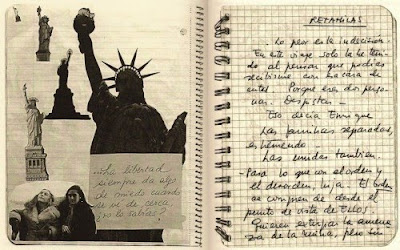 ...La libertad
siempre da algo
de miedo cuando
se ve de cerca,
¿no lo sabías?
RETAHILAS
Lo peor es la indecisión.
En este viaje solo la he teni-
do al pensar que podías
recibirme con la cara de
antes. Porque eres dos perso-
nas. Despistas —
Eso decía Enrique
Las familias separadas,
es tremendo
Las unidas también.
Para lo que
el desorden, hija. El orden
se compren de desde el
punto de vista de ellos,
Quieren evitar la amena
za de la, pero sin